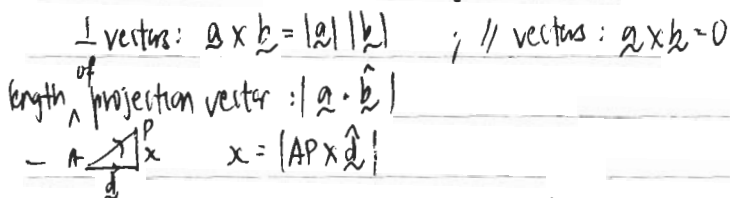 ⊥ vectors: a × b = |a| |b| ; // vectors: a × b = 0
length of projection vector: |a · b̂|
– A P x d x = |AP × d̂|